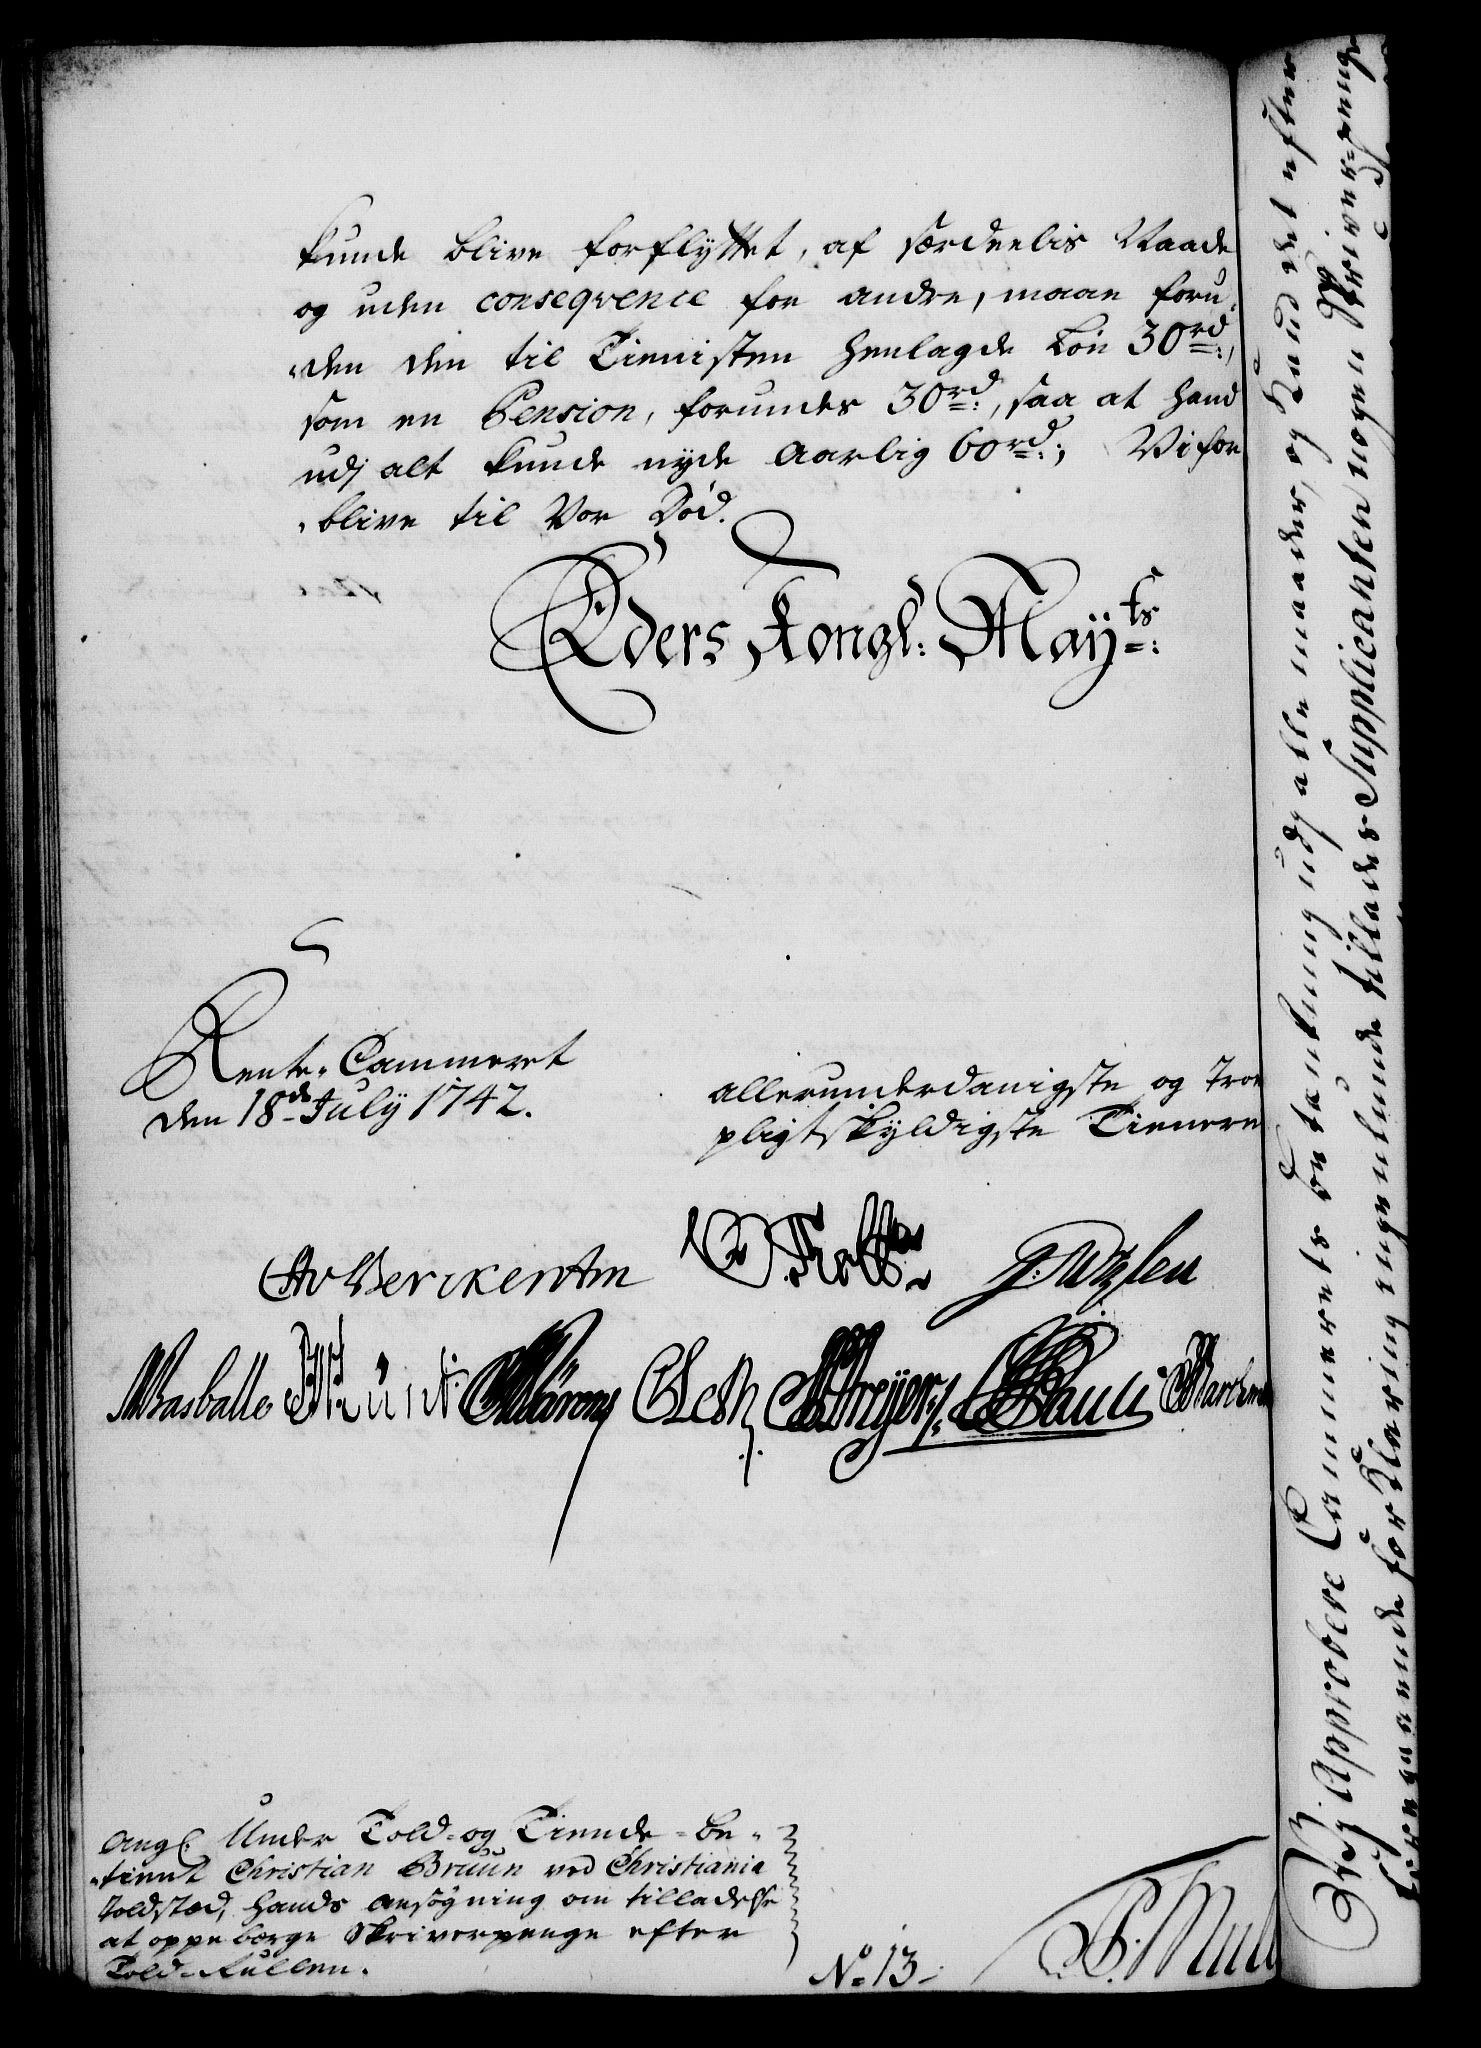 kunde blive forflyttet, af særdeelis Naade
og uden conseqvence for andre, maae foru-
den den til Tienisten henlagde Løn 30 rd:,
som en Pension, forundes 30 rd:, saa at hand
udj alt kunde nyde Aarlig 60 rd:, Vi for
blive til Vor Død.
Eders Kongl: Mayts:
Rente-Cammeret
den 18de July 1742.
allerunderdanigste og troe
pligtskyldigste Tienere
CAvBerckentin
JWBasballe CLesth
Angl. Under Told- og Tiende-Be-
tient Christian Bruun ved Christiania
Toldsted, hands ansøgning om tilladelse
at oppebærge Skriverpenge efter
Told-Rullen.
No 13
Vj Approbere Cammerets betænkning udj alle maader, og kand det efter
foregaaende forklaring ingenlunde tillades Supplicanten nogen Skriver-penge